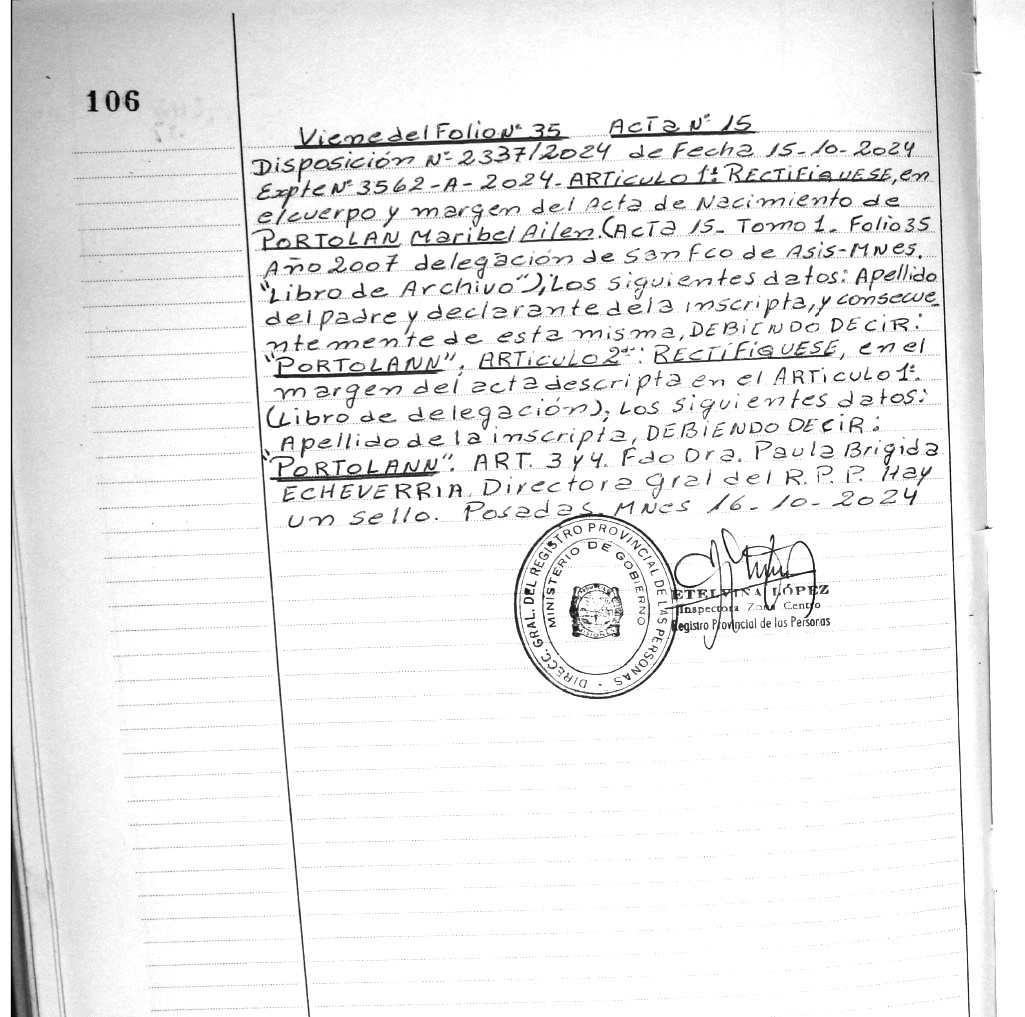 106
Viene del Folio N° 35 Acta N° 15
Disposición N° 2337/2024 de Fecha 15-10-2024
Expte N° 3562-A-2024- ARTiCULO 1°: RECTiFiQUESE, en
el cuerpo y margen del Acta de Nacimiento de
PORTOLAN Maribel Ailen. (Acta 15- Tomo 1- Folio 35
Año 2007 delegación de San Fco de Asis-MNes.
"Libro de Archivo"), Los siguientes datos: Apellido
del padre y declarante de la inscripta, y consecue_
ntemente de esta misma, DEBiENDO DECiR:
"PORTOLANN", ARTiCULO 2do: RECTiFiQUESE, en el
margen del acta descripta en el ARTiCULO 1°.
(Libro de delegación), Los siguientes datos:
Apellido de la inscripta, DEBIENDO DECiR:
"PORTOLANN". ART. 3 y 4. Fdo Dra. Paula Brigida
ECHEVERRIA. Directora Gral del R.P.P. Hay
un sello. Posadas. MNes 16-10-2024
DIRECC. GRAL. DEL REGISTRO PROVINCIAL DE LAS PERSONAS
MINISTERIO DE GOBIERNO
MISIONES
ETELVINA LÓPEZ
Inspectora Zona Centro
Registro Provincial de las Personas